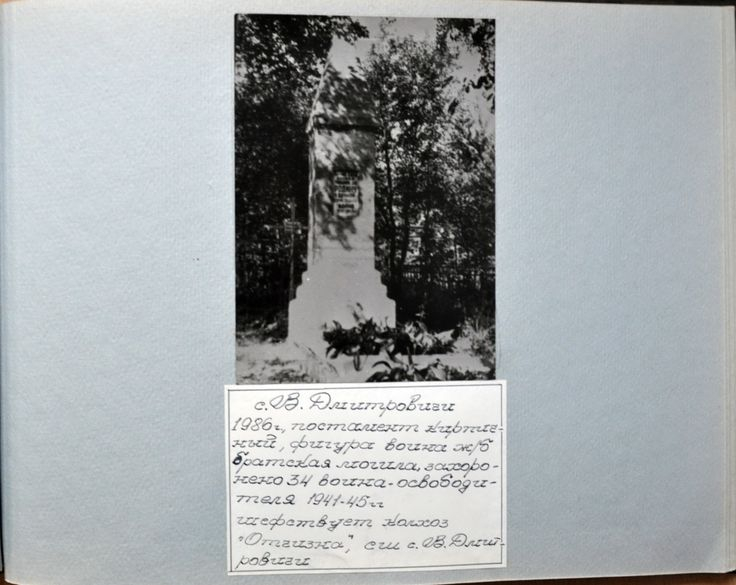 с. В. Дмитровичи
1986г, постамент кирпич-
ный, фигура воина ж/б
братская могила, захоро-
нено 34 воина-освободи-
теля 1941-45гг
шефствует колхоз
"Отчизна", сш с. В. Дмит-
ровичи